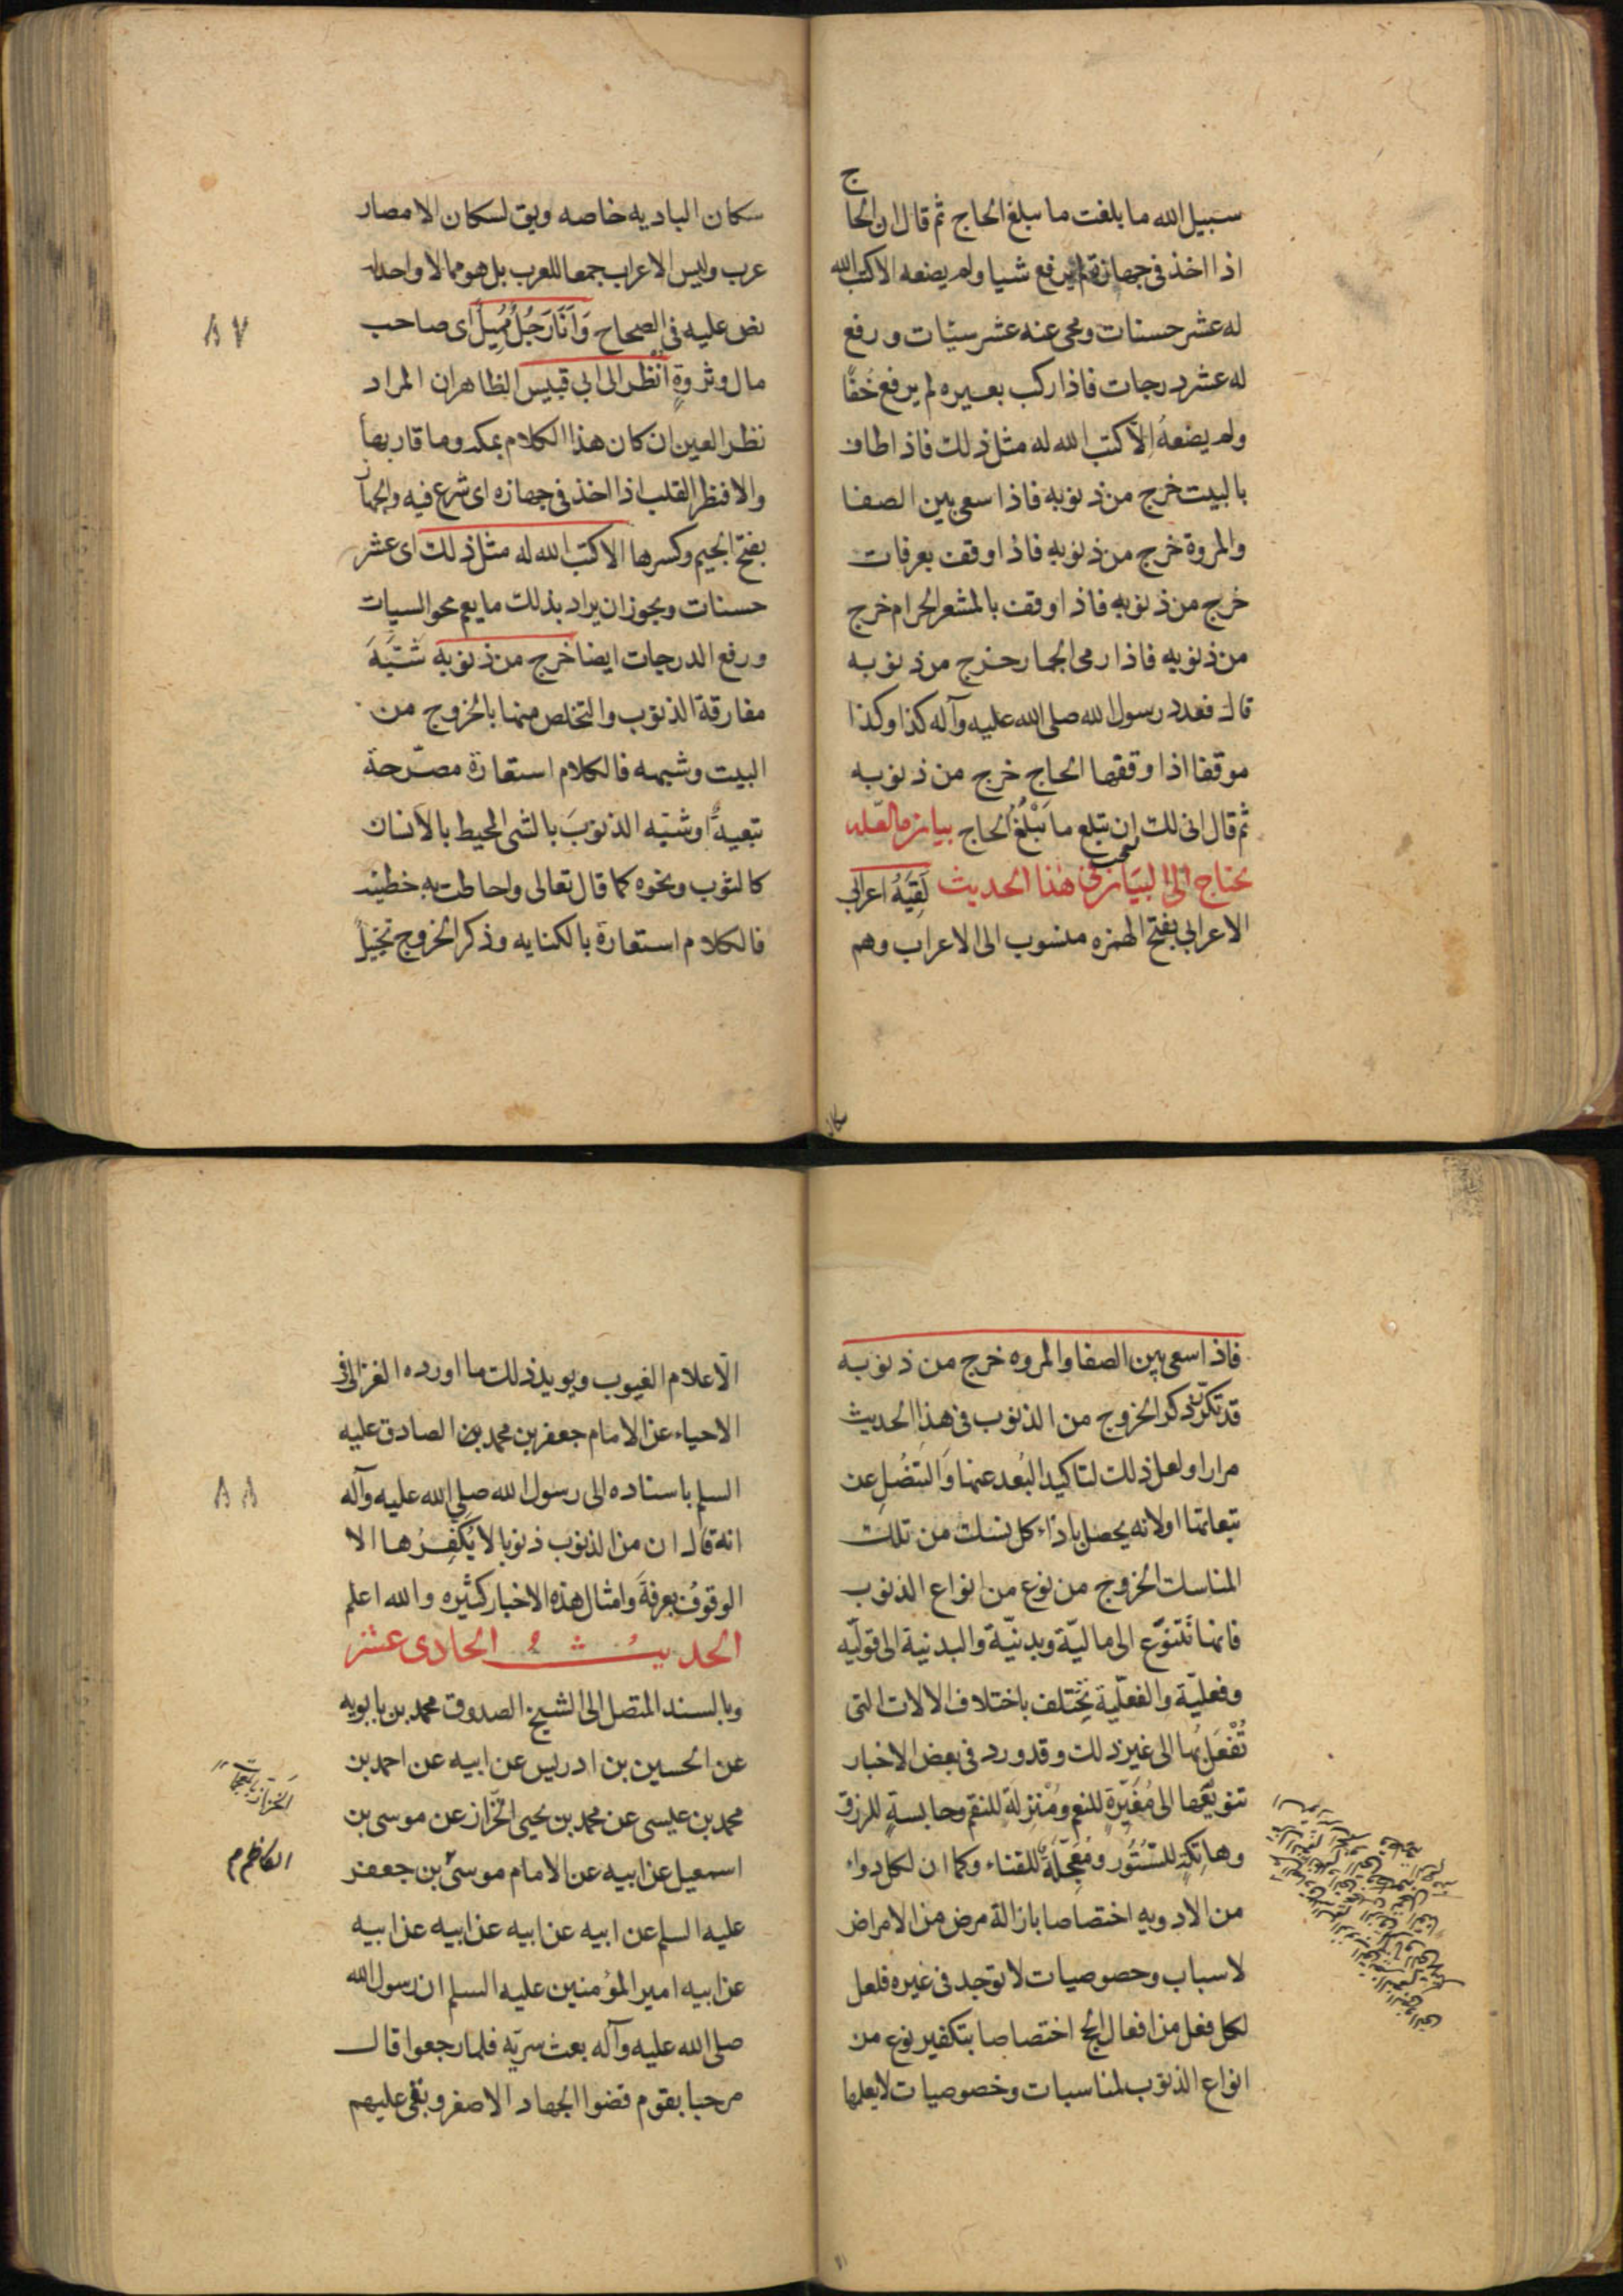 سبيل الله ما بلغت ما يبلغ الحاج ثم قال ان الحا
ج
اذا اخذ في جهازه لم يرفع شيا ولم يضعه الا كتب الله
له عشر حسنات ومحى عنه عشر سيّات ورفع
له عشر درجات فاذا ركب بعيره لم يرفع خُفًّا
ولم يضعهُ الّا كتب الله له مثل ذلك فاذا طاف
بالبيت خرج من ذنوبه فاذا سعى بين الصفا
والمروة خرج من ذنوبه فاذا وقف بعرفات
خرج من ذنوبه فاذا وقف بالمشعر الحرام خرج
من ذنوبه فاذا رمى الجمار خرج من ذنوبه
قال فعدد رسول الله صلى الله عليه وآله كذا وكذا
موقفا اذا وقفها الحاج خرج من ذنوبه
ثم قال انى لك ان تبلغ ما يَبْلُغُ الحاج بيان ما لعّله
يحتاج الى البيان في هذا الحديث لَقِيَهُ اعرابي
الاعرابي بفتح الهمزه منسوب الى الاعراب وهم
سكان
سكان الباديه خاصه ويق لسكان الامصار
عرب وليس الاعراب جمعا للعرب بل هو مما لا واحد له
نص عليه في الصحاح وَاَنَا رَجُلٌ مُمِيلٌ اى صاحب
مال وثروةٍ اُنْظُر الى ابى قبيس الظاهر ان المراد
نظر العين ان كان هذا الكلام بمكه وما قاربها
والا فنظر القلب اذا اخذ في جهازه اى شرع فيه والجهاز
بفتح الجيم وكسرها الا كتب الله له مثل ذلك اى عشر
حسنات ويجوز ان يراد بذلك ما يعم محو السيات
ورفع الدرجات ايضا خرج من ذنوبه شَبَّهَ
مفارقة الذنوب والتخلص منها بالخروج من
البيت وشبهه فالكلام استعارة مصّرحة
تبعيةٌ او شبّه الذنوبَ بالشى المحيط بالانسان
كالثوب ونحوه كما قال تعالى واحاطت به خطيئته
فالكلام استعارة بالكنايه وذكر الخروج تخييلٌ
٨٧
فاذا سعى بين الصفا والمروه خرج من ذنوبه
قد تكرّر ذكر الخروج من الذنوب في هذا الحديث
مرارا ولعل ذلك لتاكيد البُعد عنها وَالتنصُلِ عن
تبعاتها او لانه يحصل باذاء كل نسك من تلك
المناسك الخروج من نوع من انواع الذنوب
فانها تَتنوّع الى ماليّة وبدنيّة والبدنية الى قوليّه
وفعليّة والفعليّة تختلف باختلاف الالات التى
تُفْعَل بها الى غير ذلك وقد ورد في بعض الاخبار
تنويعها الى مُغَيّرةٍ للنعم ومُنْزِلَةٍ للنقم وحابسةٍ للرزق
وهاتكةٍ للسّتُور ومُعَجّلَةٍ للفناء وكما ان لكل دواء
من الادويه اختصاصا بازالة مرض من الامراض
لاسباب وخصوصيات لا توجد في غيره فلعل
لكل فعل من افعال الحج اختصاصا بتكفير نوع من
انواع الذنوب لمناسبات وخصوصيات لا يعلمها
الّا علام الغيوب ويويد ذلك ما اورده الغزالى في
الاحياء عن الامام جعفر بن محمد الصادق عليه
السلم باسناده الى رسول الله صلى الله عليه وآله
انه قال ان من الذنوب ذنوبا لا يُكَفِّرُها الا
الوقوفُ بعرفةَ وامثال هذه الاخبار كثيره والله اعلم
الحديثُ الحادى عشر
وبالسند المتصل الى الشيخ الصدوق محمد بن بابويه
عن الحسين بن ادريس عن ابيه عن احمد بن
محمد بن عيسى عن محمد بن يحيى الخّزاز عن موسى بن
اسمعيل عن ابيه عن الامام موسى بن جعفر
عليه السلم عن ابيه عن ابيه عن ابيه عن ابيه
عن ابيه امير المؤمنين عليه السلم ان رسول الله
صلى الله عليه وآله بعث سريّه فلما رجعوا قال
مرحبا بقوم قضوا الجهاد الاصغر وبقى عليهم
٨٨
الكاظم م